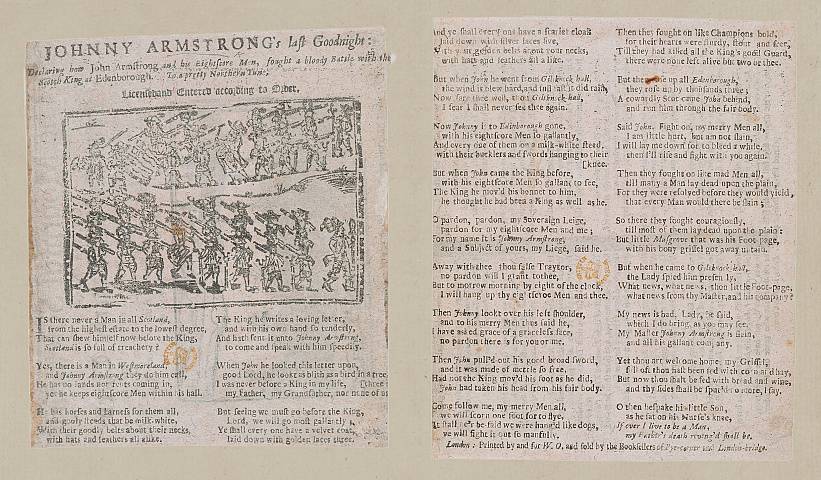 JOHNNY ARMSTRONG's last Goodnight:
Declaring how John Armstrong and his Eightscore Men, fought a bloody Battle with the
Scotch King at Edenborough. To a pretty Northern Tune,
Licensed and Entered according to Order.
IS there never a Man in all Scotland,
from the highest estate to the lowest degree,
That can shew himself now before the King,
Scotland is so full of treachery?
Yes, there is a Man in Westmoreland,
and Johnny Armstrong they do him call,
He has no lands nor rents coming in,
yet he keeps eightscore Men within his hall.
He has horses and harness for them all,
and goodly steeds that be milk-white,
With their goodly belts about their necks,
with hats and feathers all alike.
The King he writes a loving letter,
and with his own hand so tenderly,
And hath sent it unto Johnny Armstrong,
to come and speak with him speedily.
When John he looked this letter upon,
good Lord, he lookt as blith as a bird in a tree
I was never before a King in my life, [three
my Father, my Grandfather, nor none of us
But seeing we must go before the King,
Lord, we will go most gallantly,
Ye shall every one have a velvet coat,
laid down with golden laces three.
And ye shall every one have a scarlet cloak
laid down with silver laces five,
With your golden belts about your necks,
with hats and feathers all alike.
But when John he went from Giltknock hall,
the wind it blew hard, and full fast it did rain,
Now fare thee well, thou Giltknock hall,
I fear I shall never see thee again.
Now Johnny is to Edenborough gone,
with his eightscore Men so gallantly,
And every one of them on a milk-white steed,
with their bucklers and swords hanging to their
[knee.
But when John came the King before,
with his eightscore Men so gallant to see,
The King he mov'd his bonnet to him,
he thought he had been a King as well as he.
O pardon, pardon, my Soveraign Leige,
pardon for my eightscore Men and me;
For my name it is Johnny Armstrong,
and a Subject of yours, my Liege, said he.
Away with thee thou false Traytor,
no pardon will I grant to thee,
But to morrow morning by eight of the clock,
I will hang up thy eightscore Men and thee.
Then Johnny lookt over his left shoulder,
and to his merry Men thus said he,
I have asked grace of a graceless face,
no pardon there is for you or me.
Then John pull'd out his good broad sword,
and it was made of mettle so free.
Had not the King mov'd his foot as he did,
John had taken his head from his fair body.
Come follow me, my merry Men all,
we will scorn one foot for to flye,
It shall ne'r be said we were hang'd like dogs,
we will fight it out so manfully.
Then they fought on like Champions bold,
for their hearts were sturdy, stout and free,
Till they had killed all the King's good Guard,
there were none left alive but two or three.
But then rose up all Edenborough,
they rose up by thousands three;
A cowardly Scot came John behind,
and run him through the fair body.
Said John, Fight on, my merry Men all,
I am little hurt, but am not slain,
I will lay me down for to bleed a while,
then I'll rise and fight with you again.
Then they fought on like mad Men all,
till many a Man lay dead upon the plain,
For they were resolved before they would yield,
that every Man would there be slain;
So there they fought couragiously,
till most of them lay dead upon the plain:
But little Musgrove that was his Foot-page,
with his bonny grissel got away untain.
But when he came to Giltknock-hall,
the Lady spied him presently,
What news, what news, thou little Foot-page,
what news from thy Master, and his company?
My news is bad, Lady, he said,
which I do bring, as you may see.
My Master Johnny Armstrong is slain,
and all his gallant company.
Yet thou art welcome home, my Grissel,
full oft thou hast been fed with corn and hay,
But now thou shalt be fed with bread and wine,
and thy sides shall be spurr'd no more, I say.
O then bespake his little Son,
as he sat on his Nurse's knee,
If ever I live to be a Man,
my Father's death reveng'd shall be.
London: Printed by and for W. O. and sold by the Booksellers of Pye-corner and London-bridge.